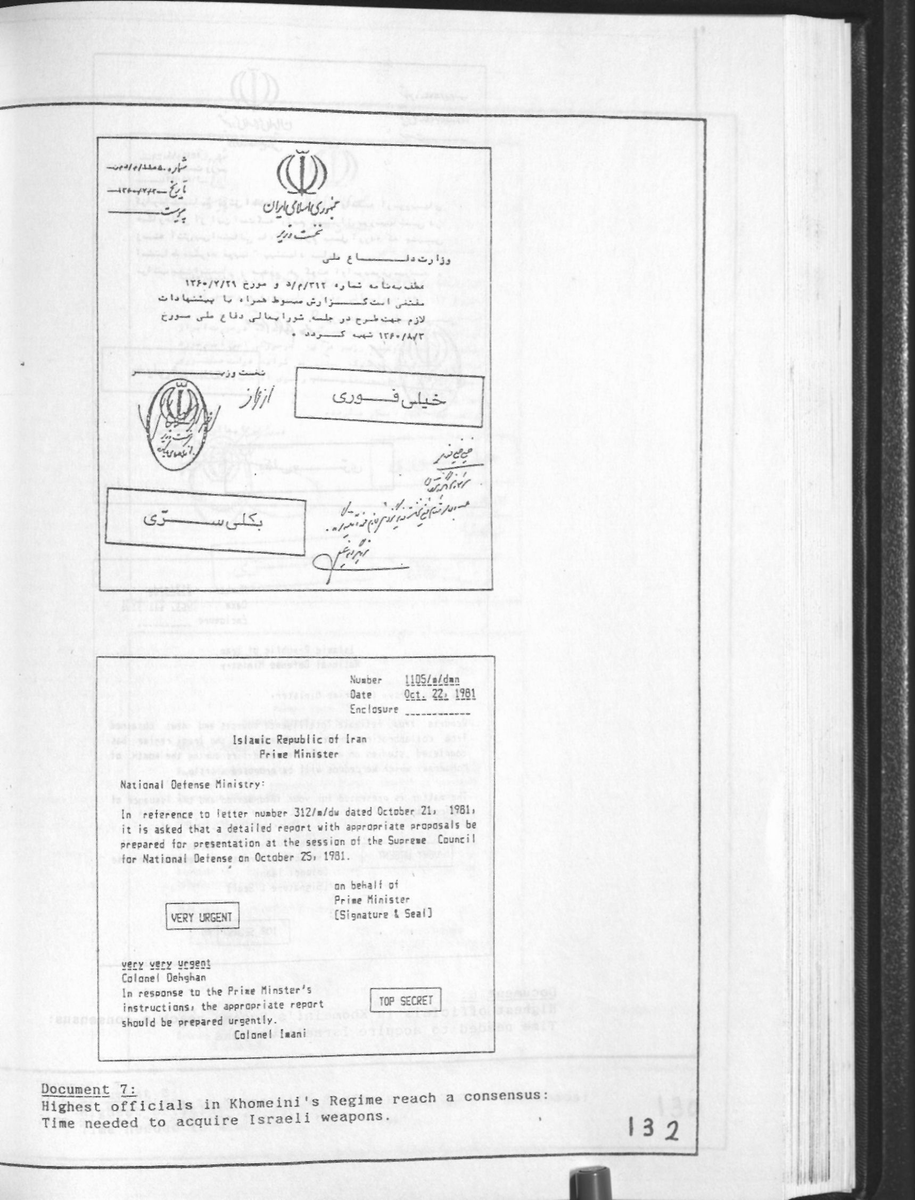 جمهوری اسلامی ایران
نخست وزیر
شماره
تاریخ
پیوست
وزارت دفـــاع ملی
عطف به نامه شماره ۳۱۲/م/د و مورخ ۱۳۶۰/۷/۲۹
مقتضی است گــزارش مبسوط همراه با پیشنهادات
لازم جهت طرح در جلسه شورایعالی دفاع ملی مــورخ
۱۳۶۰/۸/۳ تهیه گــردد .
نخست وزیــر
از طرف
خیلی فــوری
بکلی ســرّی
Number 1105/m/dmn
Date Oct. 22, 1981
Enclosure
Islamic Republic of Iran
Prime Minister
National Defense Ministry:
In reference to letter number 312/m/dw dated October 21, 1981,
it is asked that a detailed report with appropriate proposals be
prepared for presentation at the session of the Supreme Council
for National Defense on October 25, 1981.
on behalf of
Prime Minister
[Signature & Seal]
VERY URGENT
very very urgent
Colonel Dehghan
In response to the Prime Minster's
instructions, the appropriate report
should be prepared urgently.
Colonel Imani
TOP SECRET
Document 7:
Highest officials in Khomeini's Regime reach a consensus:
Time needed to acquire Israeli weapons.
132